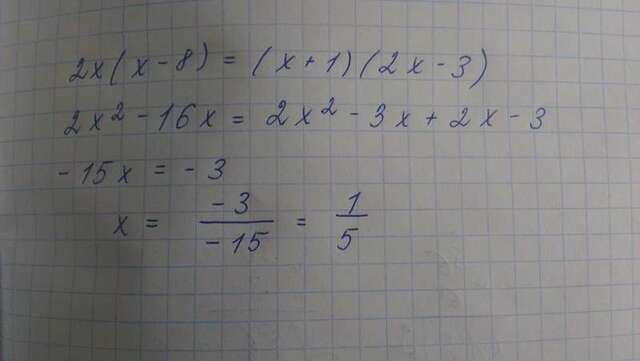 2x(x-8) = (x+1)(2x-3)
2x² - 16x = 2x² - 3x + 2x - 3
-15x = -3
x = -3/-15 = 1/5